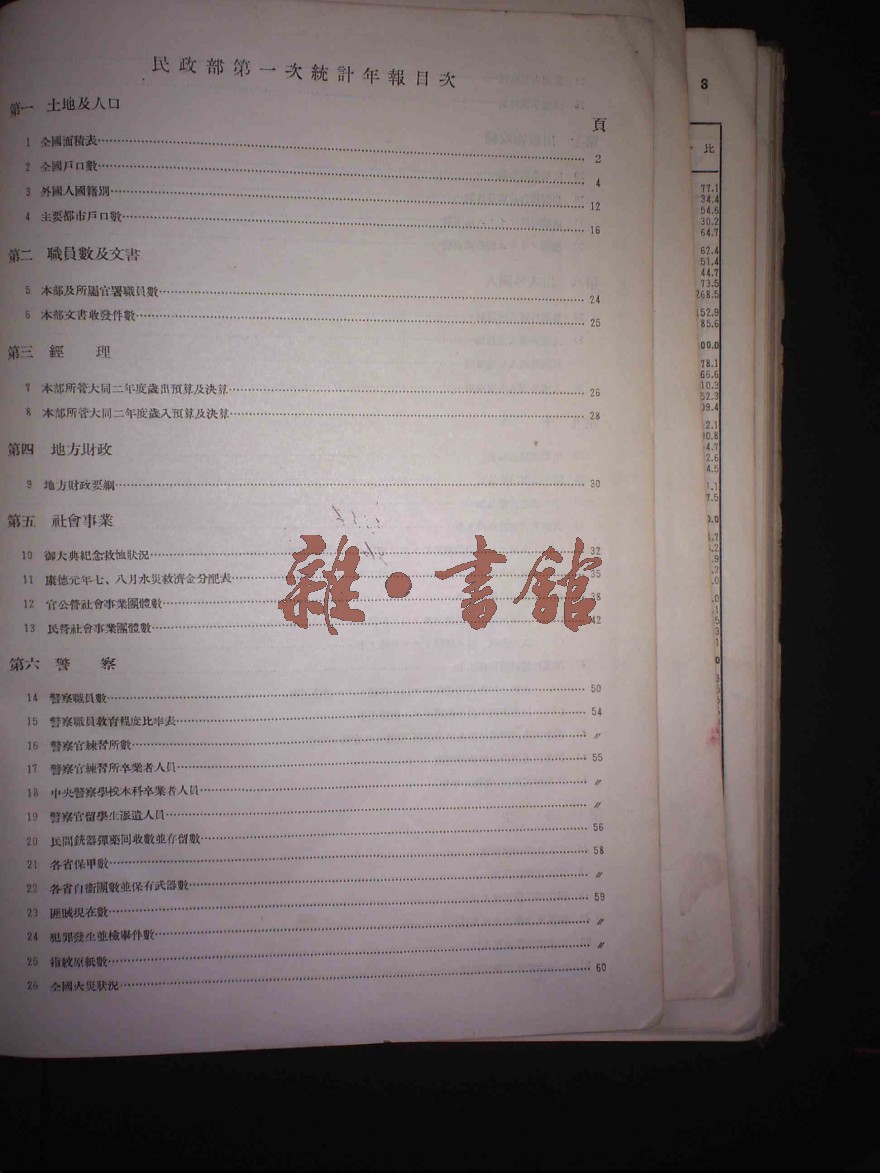 民政部第一次統計年報目次
第一 土地及人口
頁
1 全國面積表 2
2 全國戶口數 4
3 外國人國籍別 12
4 主要都市戶口數 16
第二 職員數及文書
5 本部及所屬官署職員數 24
6 本部文書收發件數 25
第三 經 理
7 本部所管大同二年度歲出預算及決算 26
8 本部所管大同二年度歲入預算及決算 28
第四 地方財政
9 地方財政要綱 30
第五 社會事業
10 御大典紀念救恤狀況 32
11 康德元年七、八月水災救濟金分配表 35
12 官公營社會事業團體數 38
13 民營社會事業團體數 42
第六 警 察
14 警察職員數 50
15 警察職員教育程度比率表 54
16 警察官練習所數 〃
17 警察官練習所卒業者人員 55
18 中央警察學校本科卒業者人員 〃
19 警察官留學生派遣人員 〃
20 民間銃器彈藥回收數並存留數 56
21 各省保甲數 58
22 各省自衞團數並保有武器數 〃
23 匪賊現在數 59
24 犯罪發生並檢舉件數 〃
25 指紋原紙數 〃
26 全國火災狀況 60
雜·書館
8
比
77.1
34.4
54.6
30.2
64.7
62.4
51.4
44.7
73.5
268.5
152.9
85.6
00.0
78.1
66.6
10.3
52.3
09.4